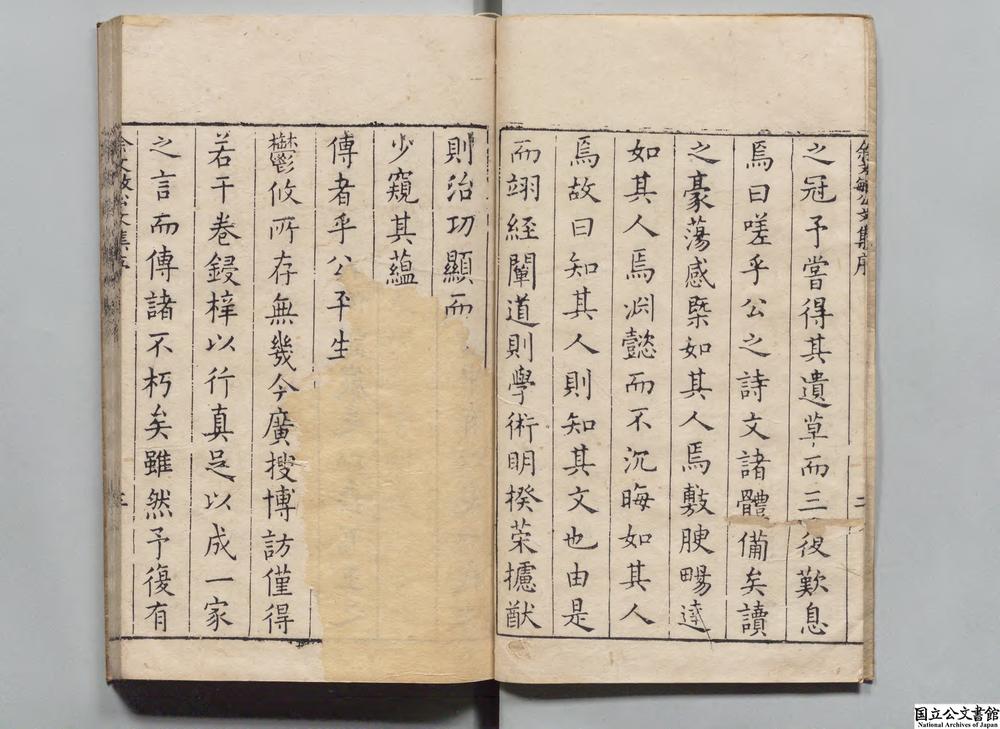 余文敏公文集序
二
之冠予嘗得其遺草而三復歎息
焉曰嗟乎公之詩文諸體備矣讀
之豪蕩感槩如其人焉敷腴暢達
如其人焉渊懿而不沉晦如其人
焉故曰知其人則知其文也由是
而翊經闡道則學術明揆荣攄猷
則治功顯而
少窺其蘊
傳者乎公平生
鬱攸所存無幾今廣搜博訪僅得
若干卷鋟梓以行真足以成一家
之言而傳諸不朽矣雖然予復有
余文敏公文集序
三
国立公文書館
National Archives of Japan